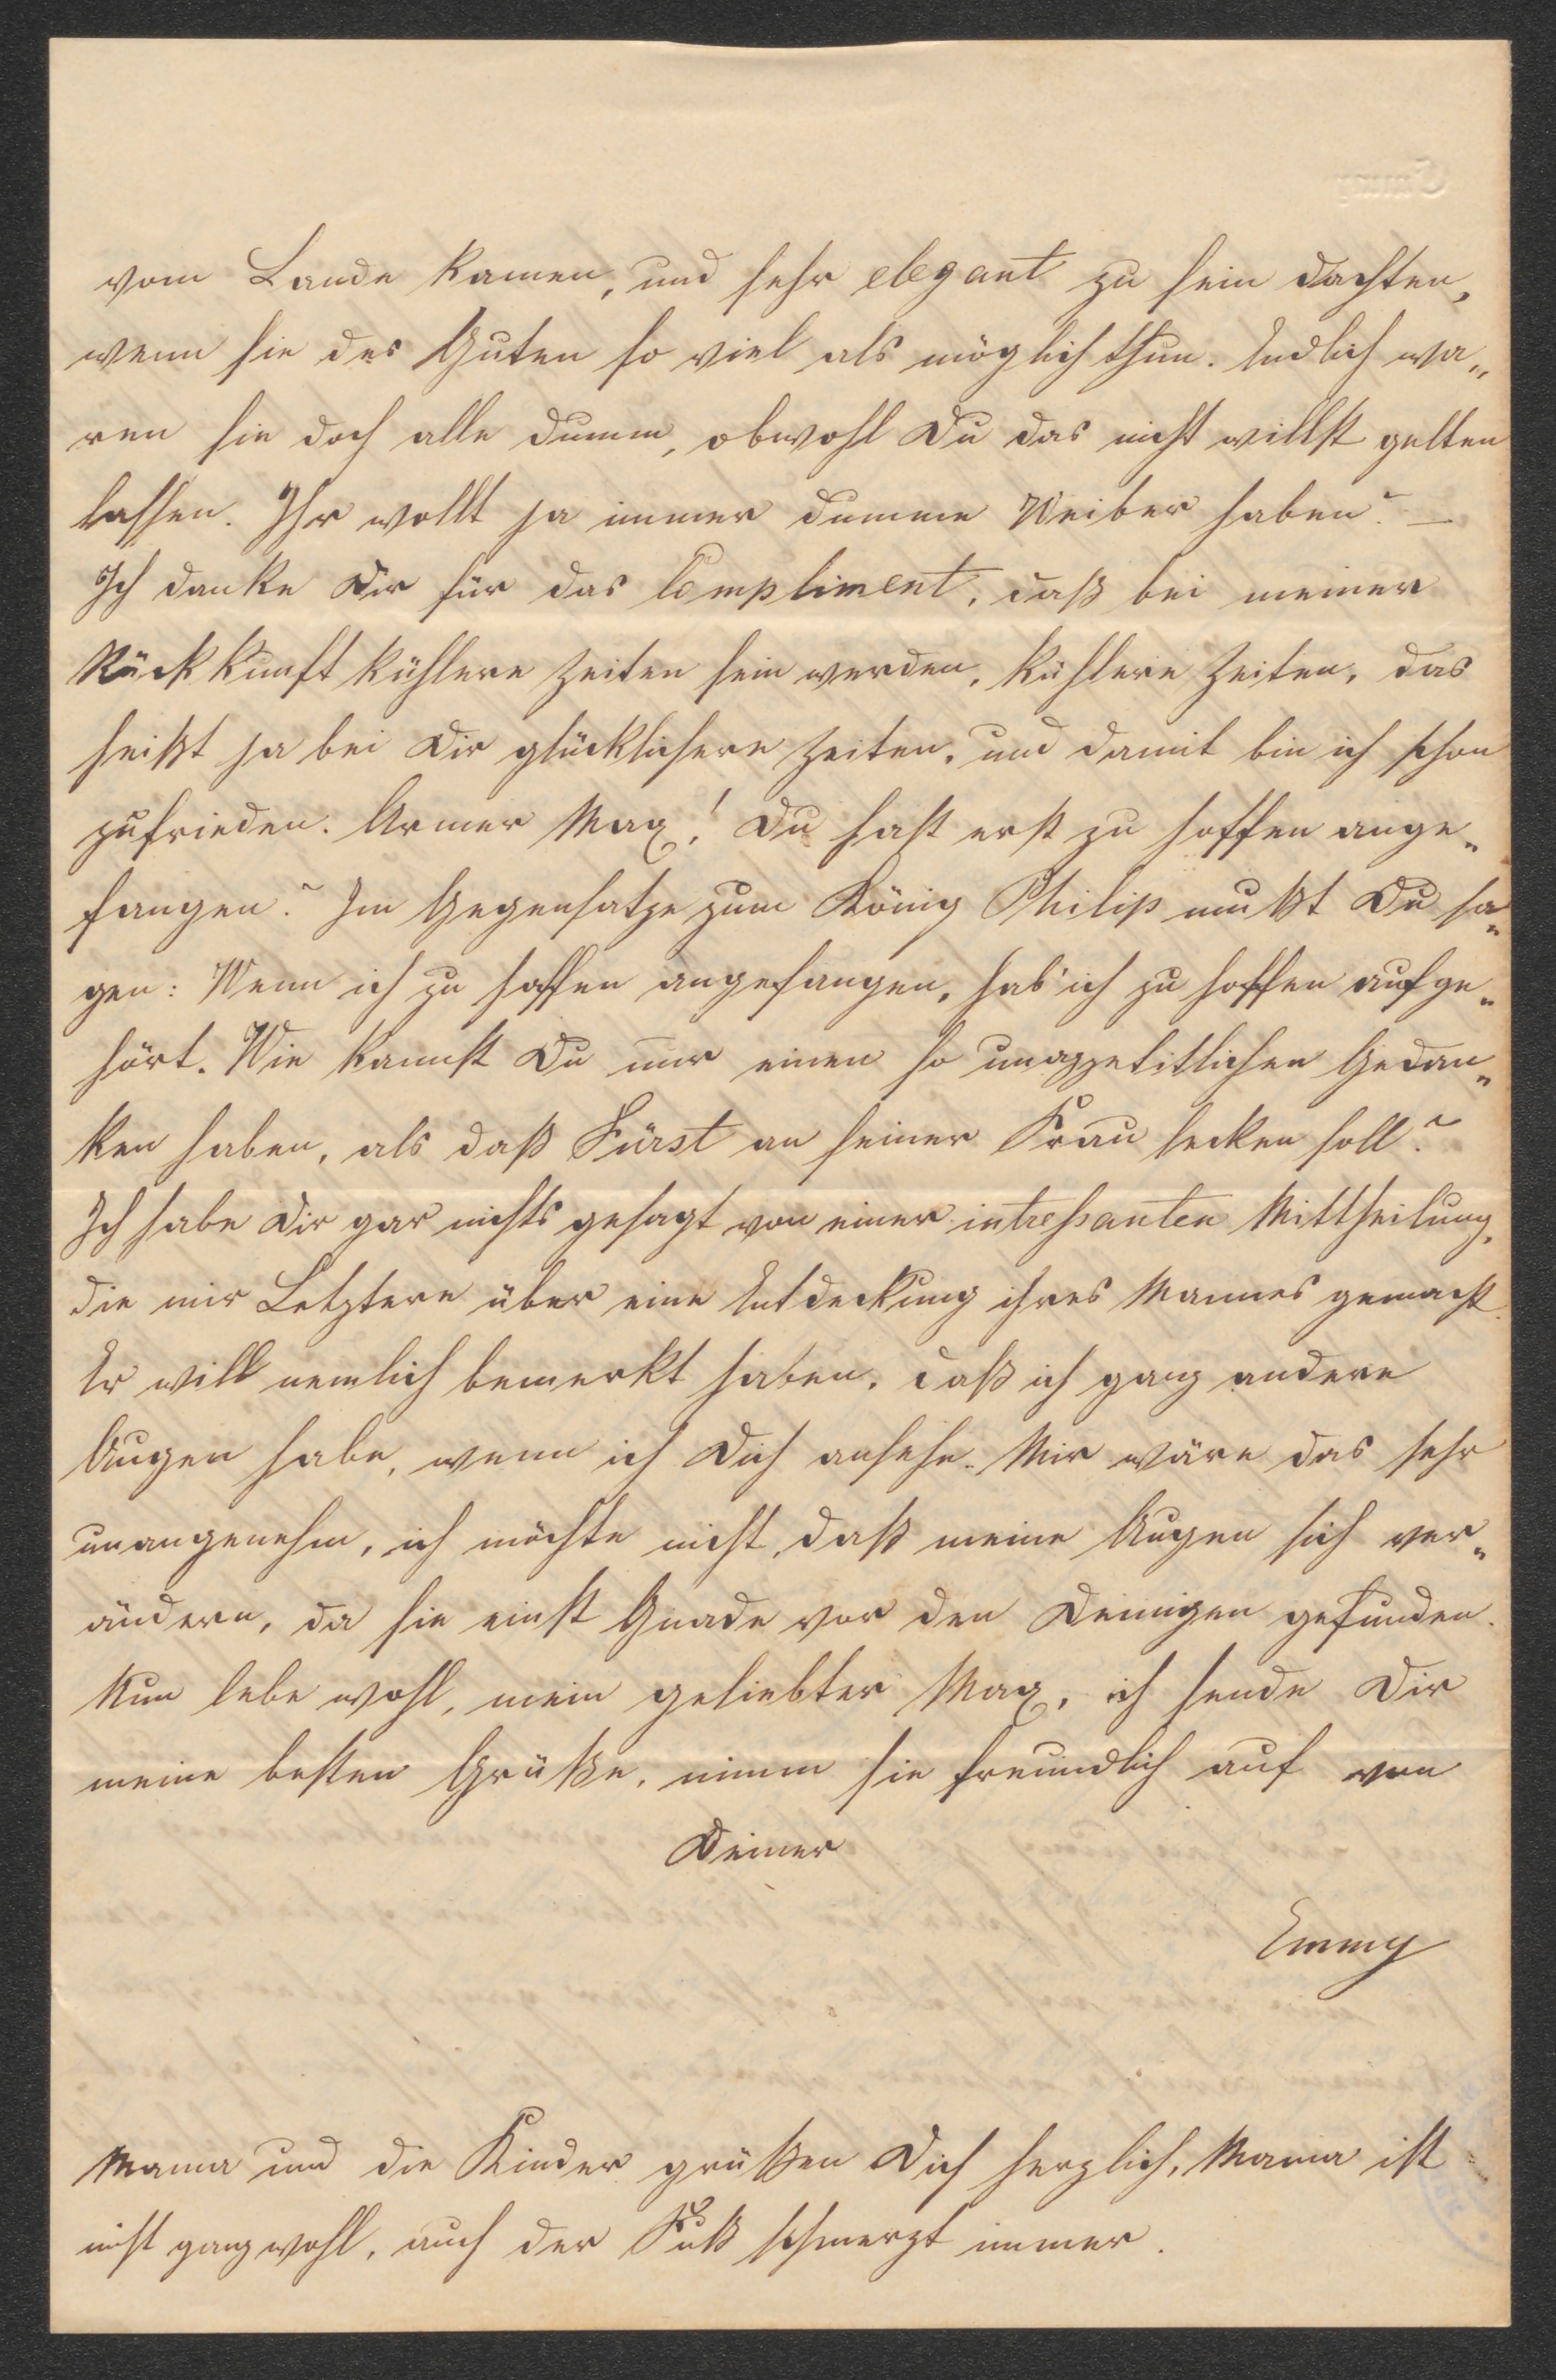 Emmy
vom Lande kamen, und sehr elegant zu sein dachten,
wenn sie des Guten so viel als möglich thun. Endlich wa„
ren sie doch alle dumm, obwohl Du das nicht willst gelten
lassen. Ihr wollt ja immer dumme Weiber haben? —
Ich danke Dir für das Compliment, daß bei meiner
Rückkunft kühlere Zeiten sein werden, kühlere Zeiten, das
heißt ja bei Dir glücklichere Zeiten, und damit bin ich schon
zufrieden. Armer Max! Du hast erst zu hoffen ange„
fangen? Im Gegensatze zum König Philip mußt Du sa„
gen: Wenn ich zu hoffen angefangen, hab' ich zu hoffen aufge„
hört. Wie kannst Du nur einen so unappetitlichen Gedan„
ken haben, als daß Fürst an seiner Frau lecken soll?
Ich habe Dir gar nichts gesagt von einer intressanten Mittheilung,
die mir Letztere über eine Entdeckung ihres Mannes gemacht.
Er will nemlich bemerkt haben, daß ich ganz andere
Augen habe, wenn ich Dich ansehe. Mir wäre das sehr
unangenehm, ich möchte nicht, daß meine Augen sich ver„
ändern, da sie einst Gnade vor den Deinigen gefunden.
Nun lebe wohl, mein geliebter Max, ich sende Dir
meine besten Grüße, nimm sie freundlich auf von
Deiner
Emmy
Mama und die Kinder grüßen Dich herzlich, Mama ist
nicht ganz wohl, auch der Fuß schmerzt immer.